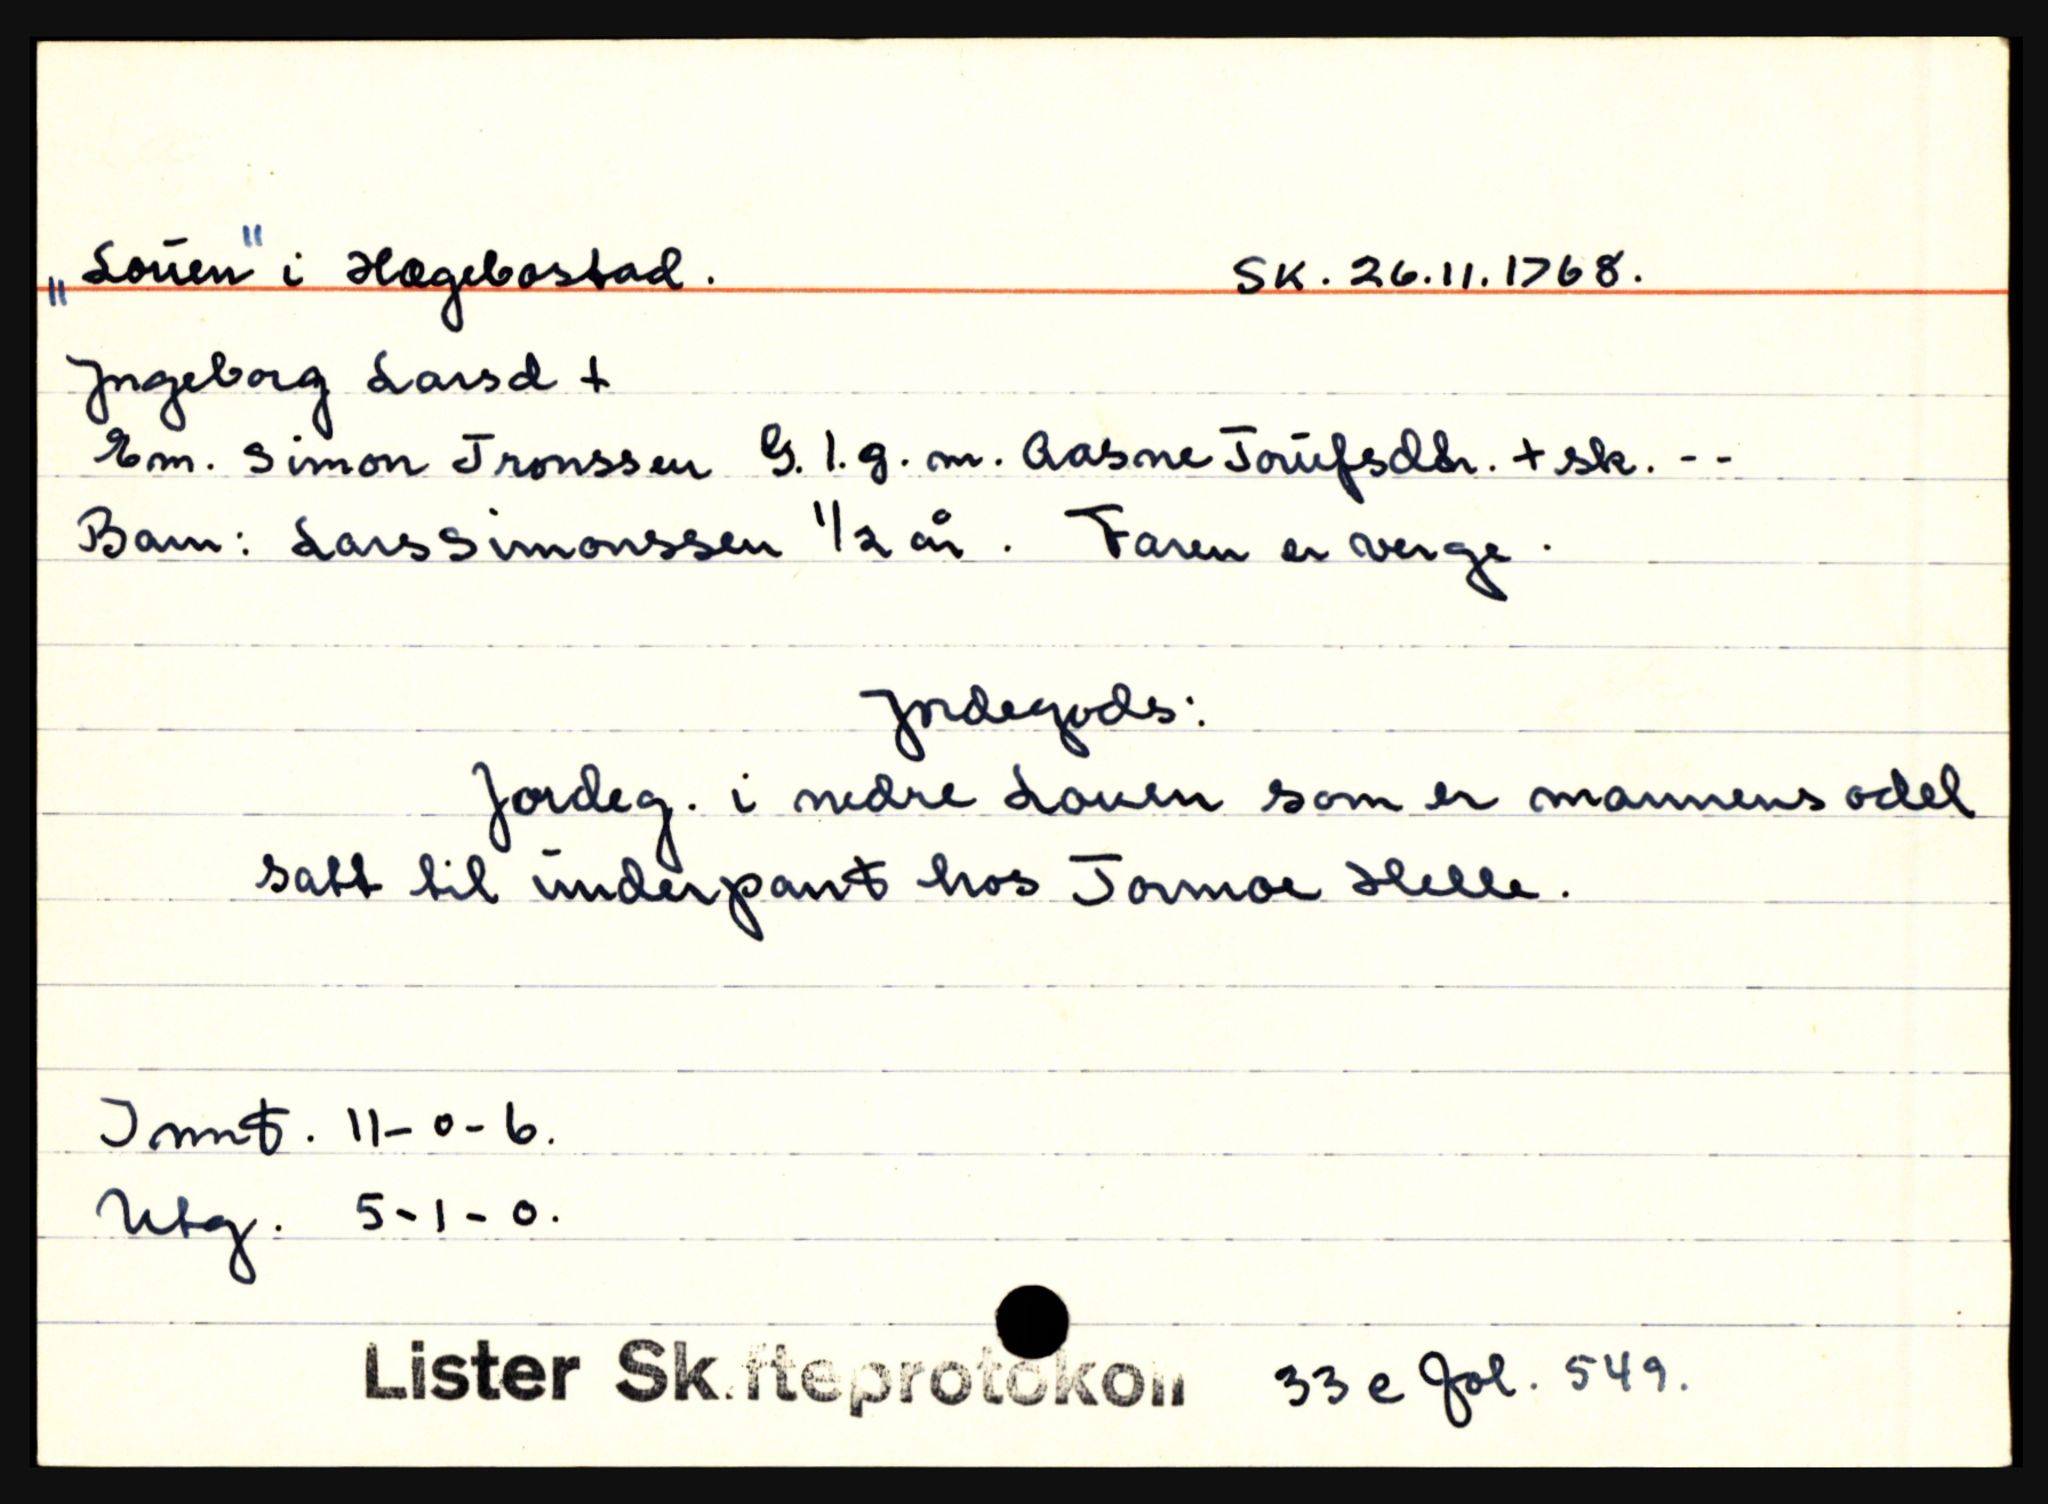 „Louen" i Hægebostad. SK. 26.11.1768.
Ingeborg Larsd +
Em. Simon Tronssen G. 1. g. m. Aasne Toufsdtr. + sk. --
Barn: Lars Simonssen 1/2 år. Faren er verge.
Jordegods:
Jordeg. i nedre Louen som er mannens odel
satt til underpant hos Tormoe Helle.
Innt. 11-0-6.
Utg. 5-1-0.
Lister Skifteprotokoll 33 e fol. 549.